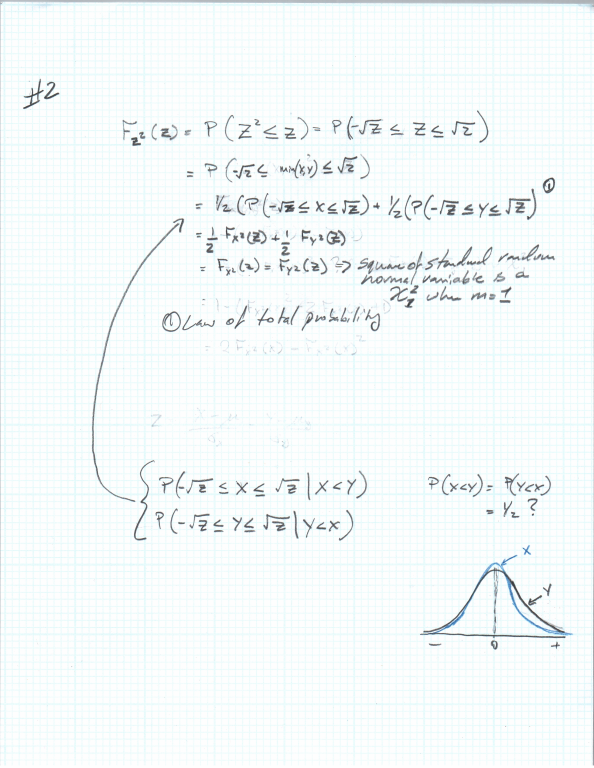 #2
F_{Z²}(z) = P(Z² ≤ z) = P(-√z ≤ Z ≤ √z)
= P(-√z ≤ min(X,Y) ≤ √z)
= 1/2 (P(-√z ≤ X ≤ √z) + 1/2 (P(-√z ≤ Y ≤ √z) ①
= 1/2 F_{X²}(z) + 1/2 F_{Y²}(z)
= F_{X²}(z) = F_{Y²}(z) ⇒ square of standard random
normal variable is a
χ²₁ when m = 1
① Law of total probability
P(-√z ≤ X ≤ √z | X < Y)
P(-√z ≤ Y ≤ √z | Y < X)
P(X<Y) = P(Y<X)
= 1/2 ?
X
Y
- 0 +